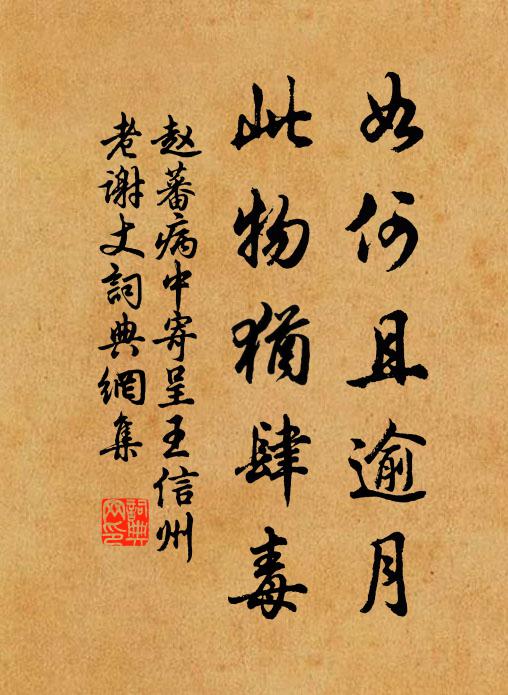 如何且逾月
此物犹肆毒
赵蕃病中寄呈王信州
老谢丈詞典網集
詞典